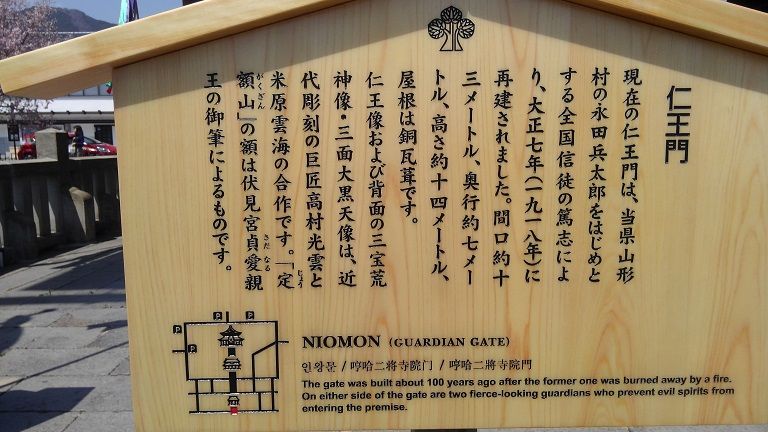 仁王門
現在の仁王門は、当県山形
村の永田兵太郎をはじめと
する全国信徒の篤志によ
り、大正七年(一九一八年)に
再建されました。間口約十
三メートル、奥行約七メー
トル、高さ約十四メートル、
屋根は銅瓦葺です。
仁王像および背面の三宝荒
神像・三面大黒天像は、近
代彫刻の巨匠高村光雲と
米原雲海の合作です。「定
額山」の額は伏見宮貞愛親
王の御筆によるものです。
じょう
がくざん
さだなる
P
P
P
P
NIOMON (GUARDIAN GATE)
인왕문 / 哼哈二将寺院门 / 哼哈二將寺院門
The gate was built about 100 years ago after the former one was burned away by a fire.
On either side of the gate are two fierce-looking guardians who prevent evil spirits from
entering the premise.